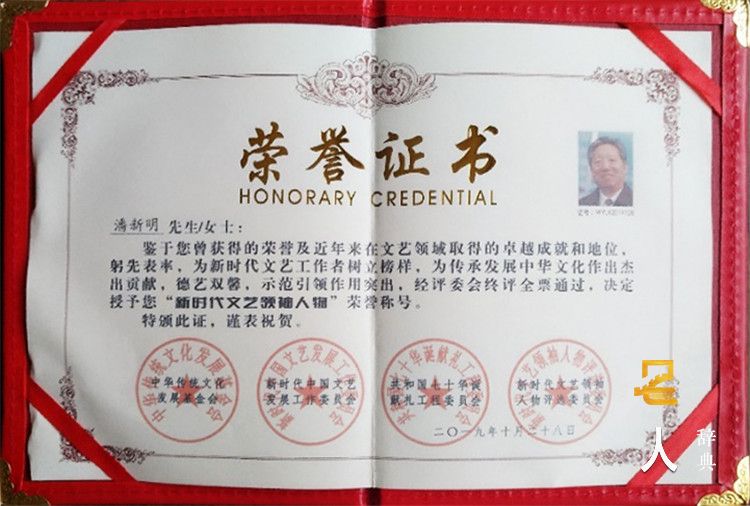 荣誉证书
HONORARY CREDENTIAL
潘新明 先生/女士：
鉴于您曾获得的荣誉及近年来在文艺领域取得的卓越成就和地位，
躬先表率，为新时代文艺工作者树立榜样，为传承发展中华文化作出杰
出贡献，德艺双馨，示范引领作用突出，经评委会终评全票通过，决定
授予您“新时代文艺领袖人物”荣誉称号。
特颁此证，谨表祝贺。
中华传统文化
发展基金会
新时代中国文艺
发展工作委员会
共和国七十华诞
献礼工程委员会
新时代文艺领袖
人物评选委员会
二〇一九年十月二十八日
名人
辞典